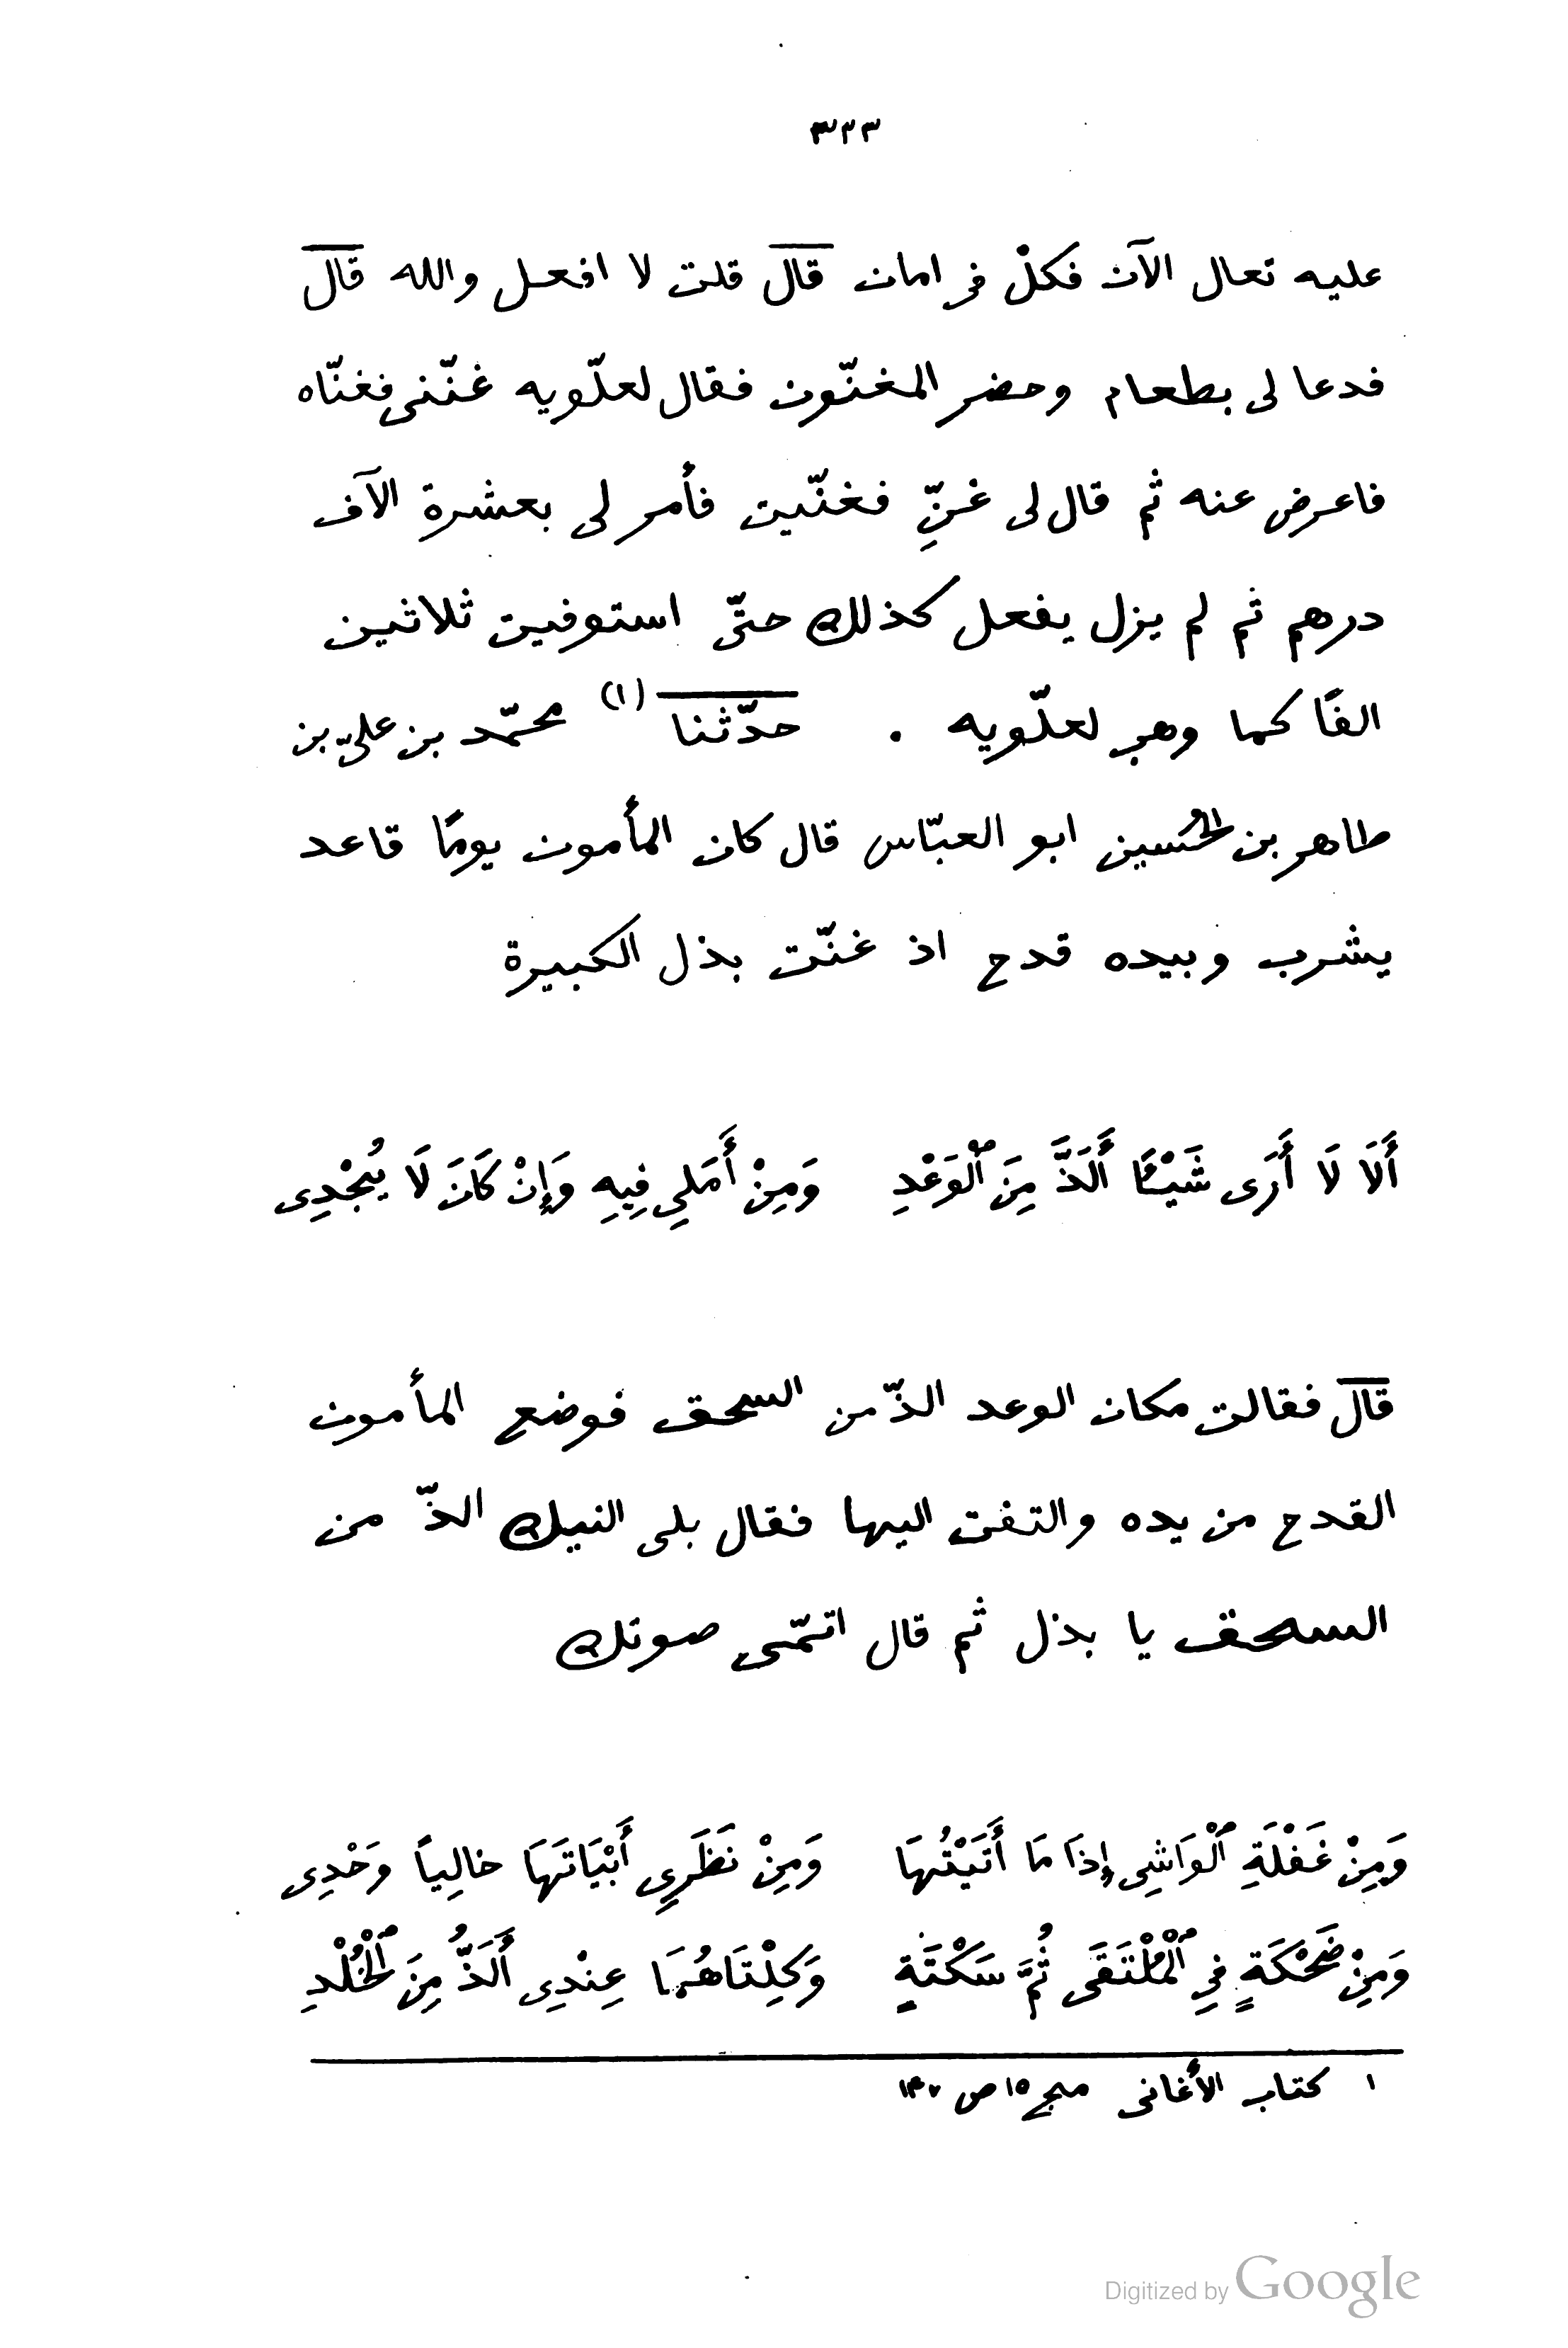 ٣٢٣
عليه تعال الآن فكلْ فى امان قال قلت لا افعل والله قال
فدعا لى بطعام وحضر المغنّون فقال لعلّويه غنّنى فغنّاه
فاعرض عنه ثم قال لى غنِّ فغنّيت فأمر لى بعشرة الآف
درهم ثم لم يزل يفعل كذلك حتّى استوفيت ثلاثين
الفًا كما وهب لعلّويه . حدّثنا (١) محمّد بن علىّ بن
طاهر بن الحُسين ابو العبّاس قال كان المأمون يومًا قاعد
يشرب وبيده قدح اذ غنّت بذل الكبيرة
أَلَا لَا أَرَى شَيْئًا أَلَذَّ مِنَ ٱلْوَعْدِ وَمِنْ أَمَلِي فِيهِ وَإِنْ كَانَ لَا يُجْدِى
قال فقالت مكان الوعد الذّ من السحق فوضع المأمون
القدح من يده والتفت اليها فقال بلى النيك الذّ من
السحق يا بذل ثم قال اتمّى صوتك
وَمِنْ غَفْلَةِ ٱلْوَاشِى إِذَا مَا أَتَيْتُهَا وَمِنْ نَظَرِي أَبْيَاتَهَا خَالِياً وَحْدِى
وَمِنْ ضَحْكَةٍ فِي ٱلْمُلْتَقَى ثُمَّ سَكْتَةٍ وَكِلْتَاهُمَا عِنْدِى أَلَذُّ مِنَ ٱلْخُلْدِ
١ كتاب الأغانى مجـ ١٥ ص ١٤٧
Digitized by Google